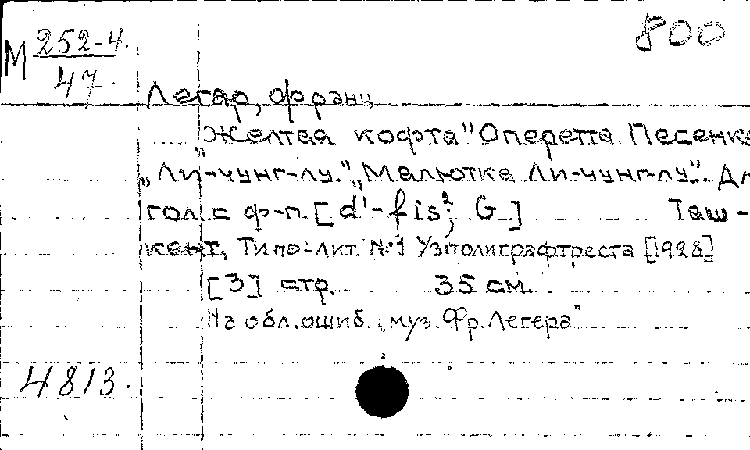 М 252-4.
47.
800
Легар, Франц
„Желтая кофта" Оперетта Песенка
„Ли-чунг-лу." „Малютка Ли-чунг-лу". Дл
гол с ф-п. [d'-fis²; G.] Таш-
кент, Типо-лит. №1 Узполиграфтреста [1928]
[3] стр. 35 см.
На обл. ошиб. „муз. Фр. Легера"
4813.